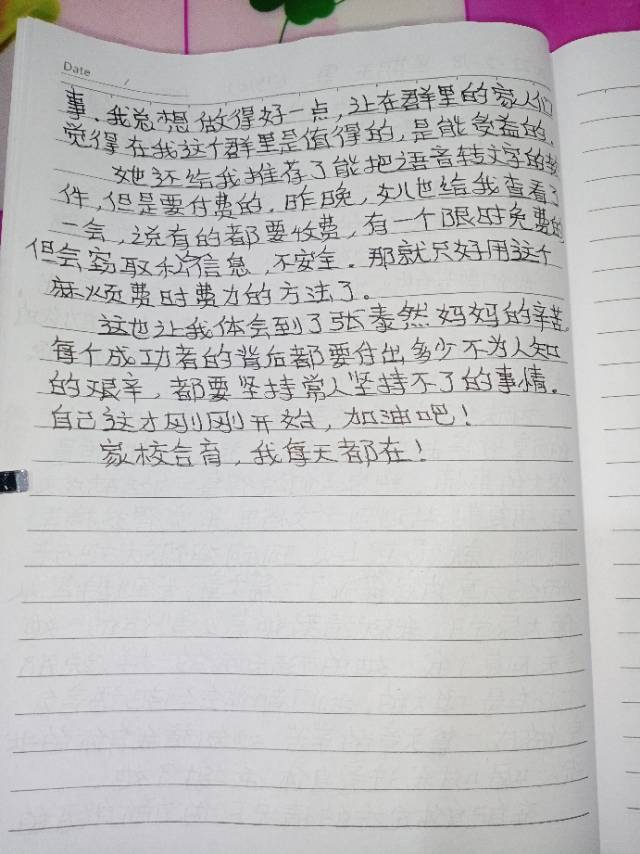 Date
事。我总想做得好一点，让在群里的家人们
觉得在我这个群里是值得的，是能受益的。
她还给我推荐了能把语音转文字的软
件，但是要付费的。昨晚，女儿也给我查看了
一会，说有的都要收费，有一个限时免费的
但会窃取私密信息，不安全。那就只好用这个
麻烦费时费力的方法了。
这也让我体会到了张泰然妈妈的辛苦。
每个成功者的背后都要付出多少不为人知
的艰辛，都要坚持常人坚持不了的事情。
自己这才刚刚开始，加油吧！
家校合育，我每天都在！